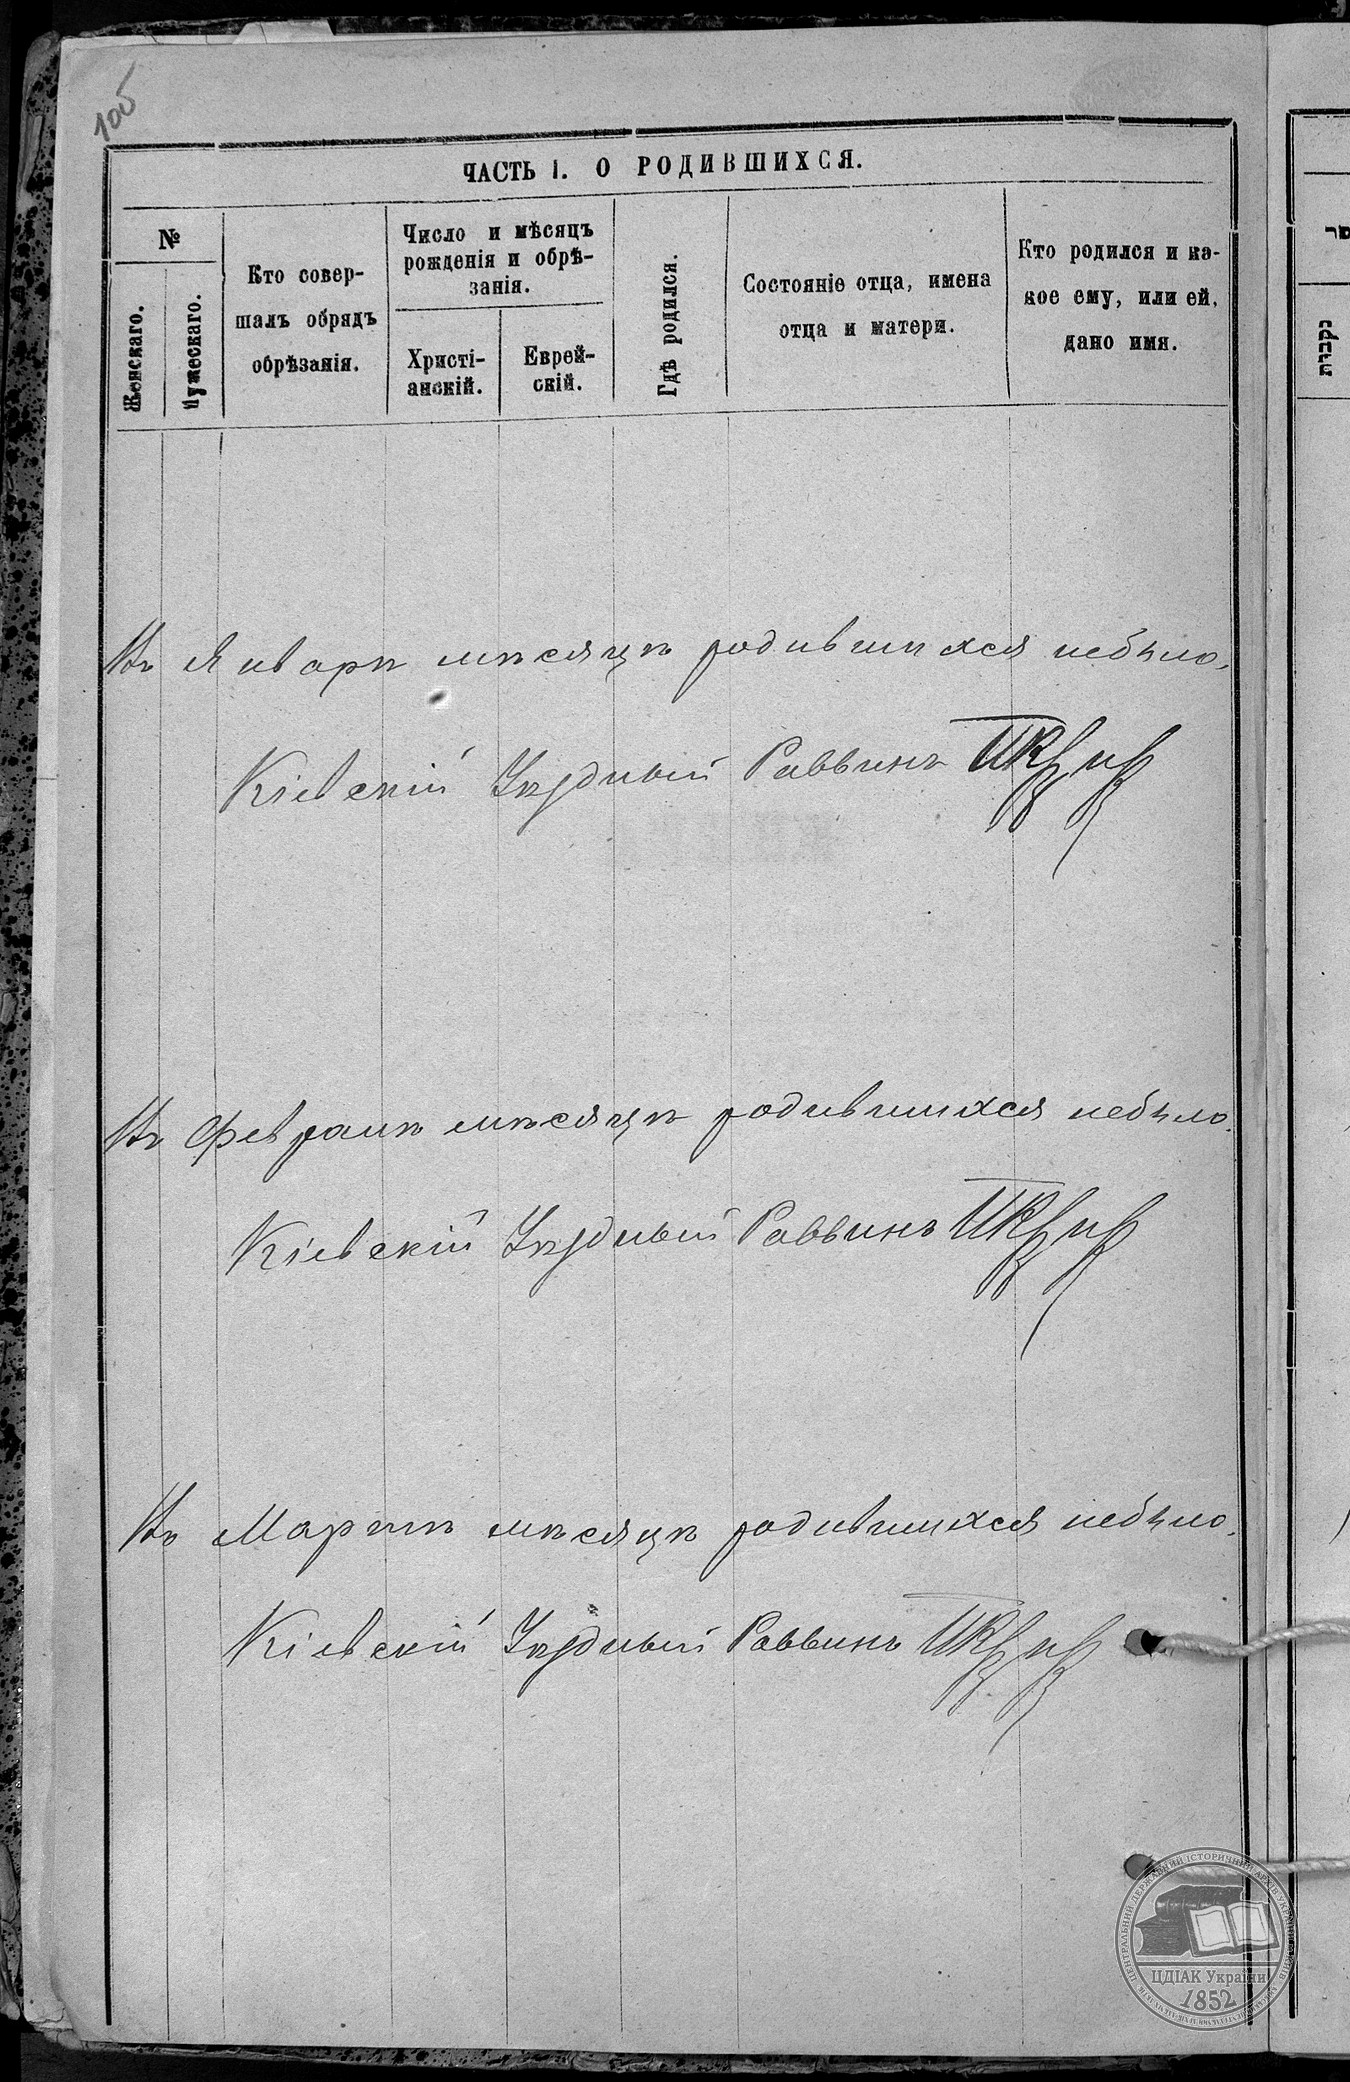 100
ЧАСТЬ I. О РОДИВШИХСЯ.
№
Женскаго.
Мужескаго.
Кто совер-
шалъ обрядъ
обрѣзанія.
Число и мѣсяцъ
рожденія и обрѣ-
занія.
Христі-
анскій.
Еврей-
скій.
Гдѣ родился.
Состояніе отца, имена
отца и матери.
Кто родился и ка-
кое ему, или ей,
дано имя.
נקבות
Въ Январѣ мѣсяцѣ родившихся небыло.
Кіевскій Уѣздный Раввинъ
Въ Февралѣ мѣсяцѣ родившихся небыло.
Кіевскій Уѣздный Раввинъ
Въ Мартѣ мѣсяцѣ родившихся небыло.
Кіевскій Уѣздный Раввинъ
ЦЕНТРАЛЬНИЙ ДЕРЖАВНИЙ ІСТОРИЧНИЙ АРХІВ УКРАЇНИ
ЦДІАК України
1852